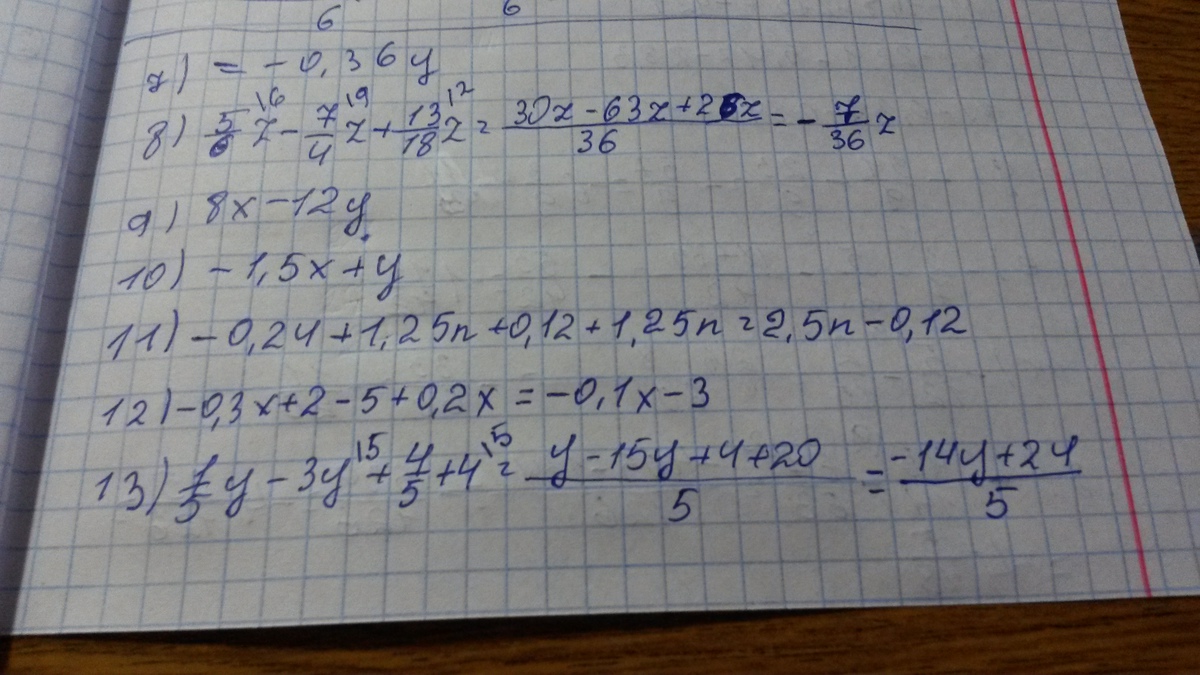 6 6
7) = -0,36y
8) 5/6\6 z - 7/4\9 z + 13/18\2 z = 30z - 63z + 26z / 36 = - 7/36 z
9) 8x - 12y
10) -1,5x + y
11) -0,24 + 1,25n + 0,12 + 1,25n = 2,5n - 0,12
12) -0,3x + 2 - 5 + 0,2x = -0,1x - 3
13) 1/5 y - 3y\5 + 4/5 + 4\5 = y - 15y + 4 + 20 / 5 = -14y + 24 / 5